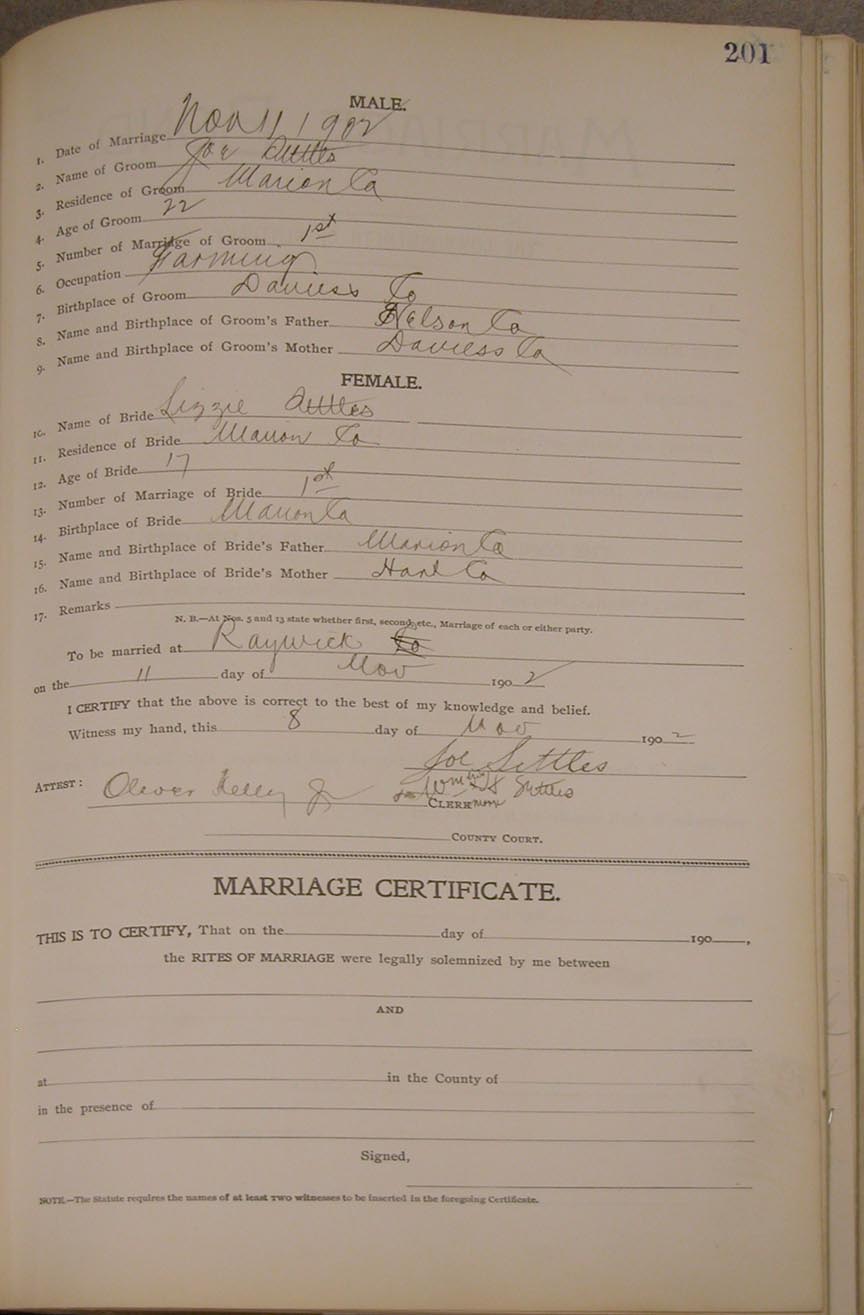 201
MALE.
1. Date of Marriage Nov 11 1902
2. Name of Groom Joe Settles
3. Residence of Groom Marion Co
4. Age of Groom 22
5. Number of Marriage of Groom 1st
6. Occupation Farming
7. Birthplace of Groom Daviess Co
8. Name and Birthplace of Groom's Father Nelson Co
9. Name and Birthplace of Groom's Mother Daviess Co
FEMALE.
10. Name of Bride Lizzie Settles
11. Residence of Bride Marion Co
12. Age of Bride 17
13. Number of Marriage of Bride 1st
14. Birthplace of Bride Marion Co
15. Name and Birthplace of Bride's Father Marion Co
16. Name and Birthplace of Bride's Mother Hart Co
17. Remarks
N. B.—At Nos. 5 and 13 state whether first, second, etc., Marriage of each or either party.
To be married at Raywick Co
on the 11 day of Nov 1902
I CERTIFY that the above is correct to the best of my knowledge and belief.
Witness my hand, this 8 day of Nov 1902
Joe Settles
ATTEST: Oliver Kelly Jr Wm his X Settles
CLERK mark
COUNTY COURT.
MARRIAGE CERTIFICATE.
THIS IS TO CERTIFY, That on the day of 190 ,
the RITES OF MARRIAGE were legally solemnized by me between
AND
at in the County of
in the presence of
Signed,
NOTE.—The Statute requires the names of at least TWO witnesses to be inserted in the foregoing Certificate.